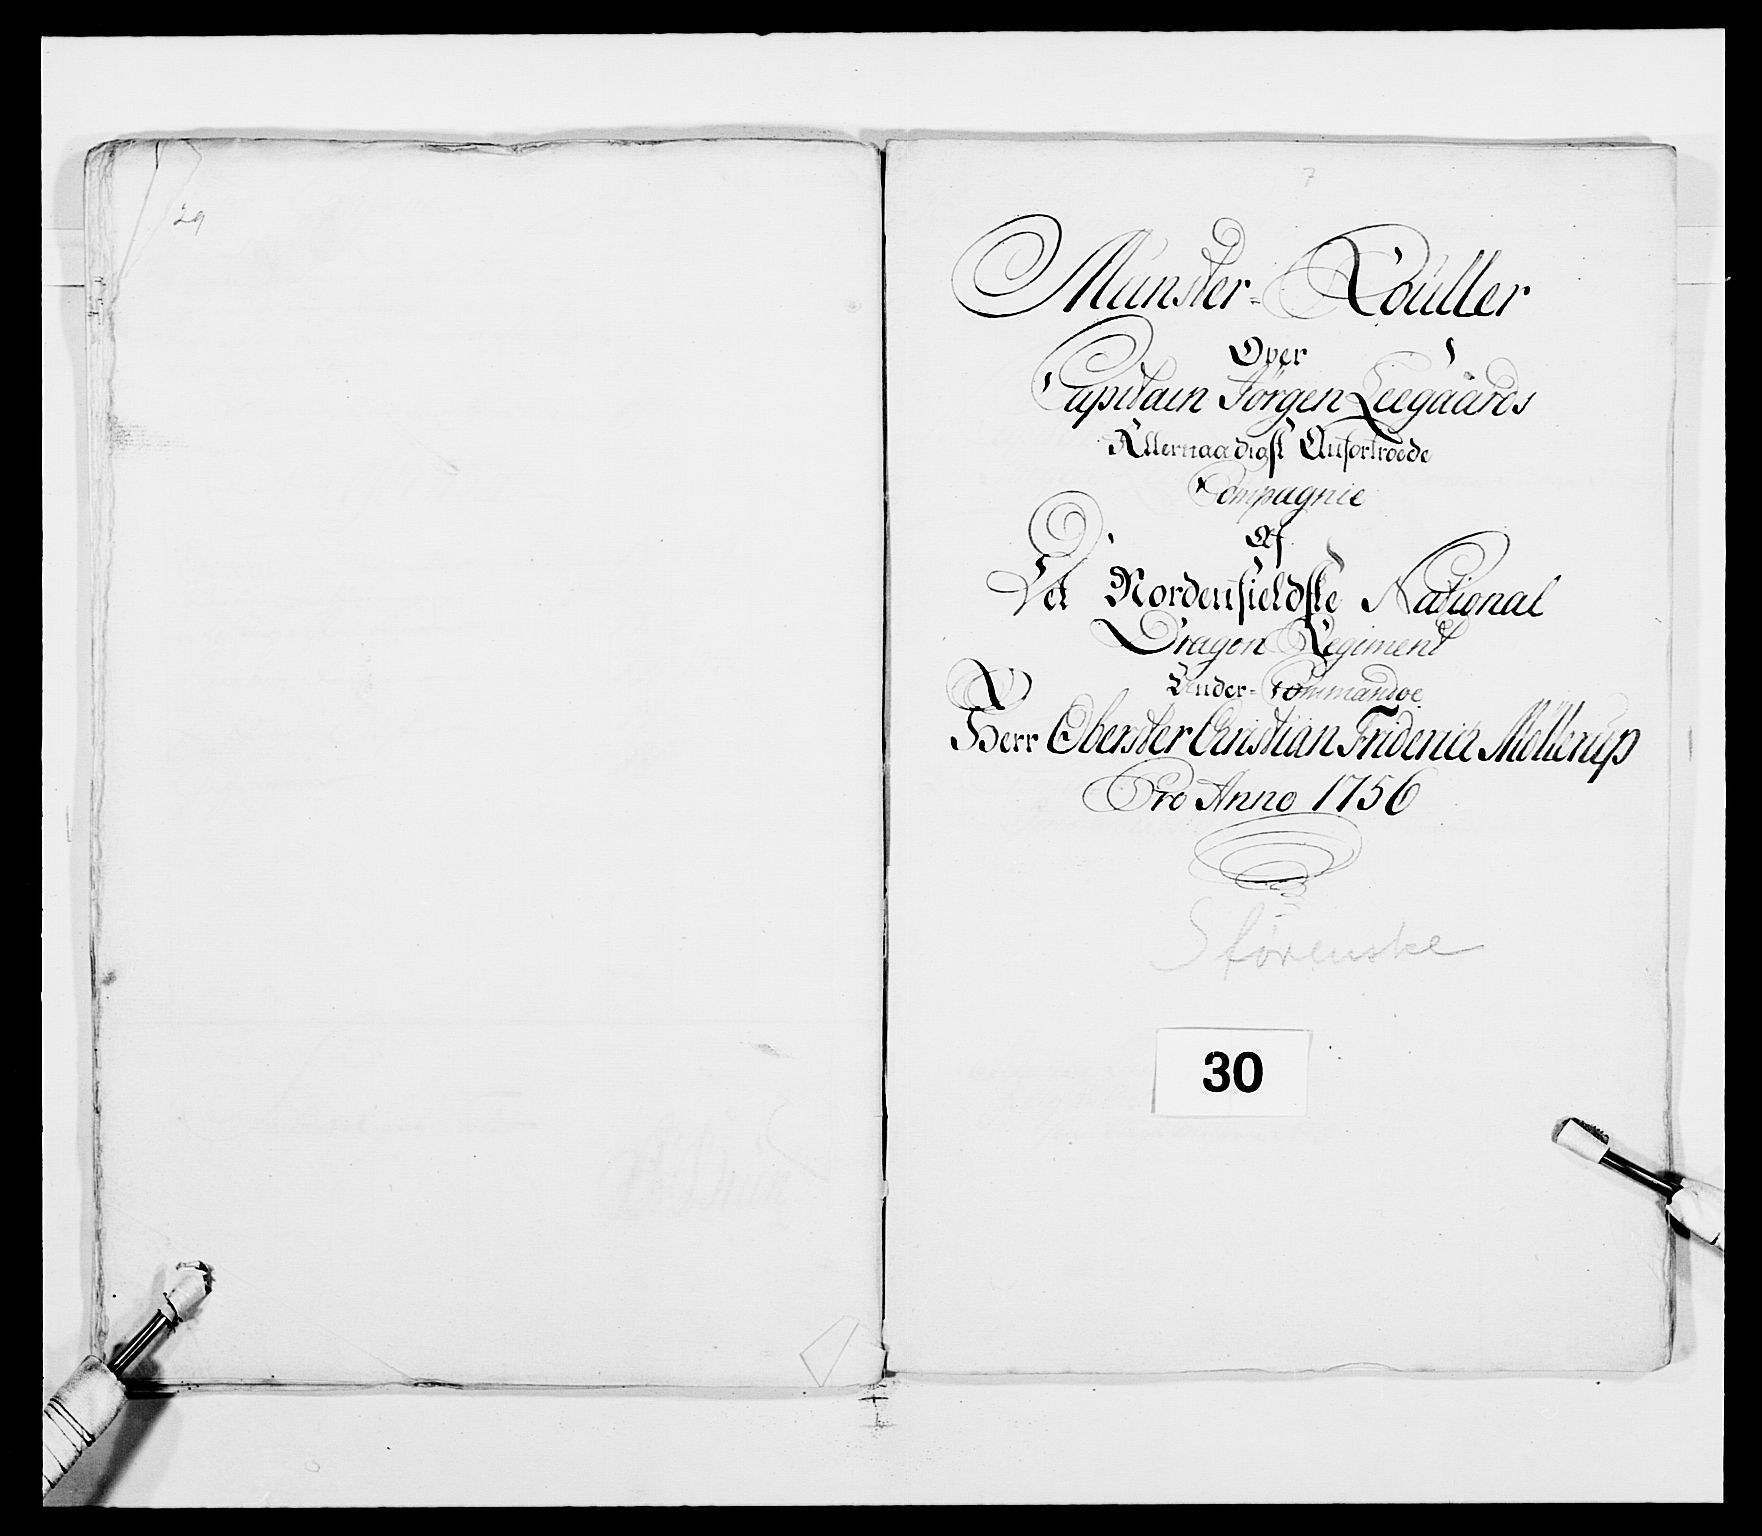 29
7
Münster-Roüller
Over
Capitain Jörgen Leegaards
Allernaadigst Anfortroede
Compagnie
Af
Det Nordenfieldske National
Dragon Regiment
Under-Commandoe
Herr Oberster Christian Friderich Möllerüp
Pro Anno 1756
Størenske
30